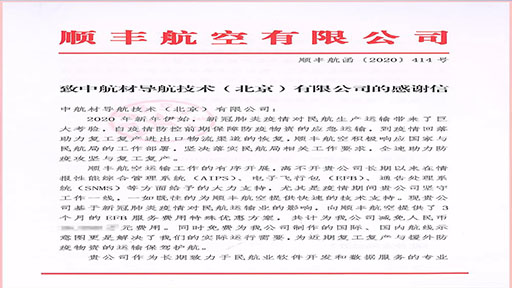 顺丰航空有限公司
顺丰航函〔2020〕414号
致中航材导航技术（北京）有限公司的感谢信
中航材导航技术（北京）有限公司：
2020年新年伊始，新冠肺炎疫情对民航生产运输带来了巨
大考验，自疫情防控前期保障防疫物资的应急运输，到疫情回落
助力复工复产进出口物流渠道的恢复，顺丰航空积极响应国家与
民航局的工作部署，坚决落实民航局相关工作要求，全速助力防
疫攻坚与复工复产。
顺丰航空运输工作的有序开展，离不开贵公司长期以来在情
报性能综合管理系统（AIPS）、电子飞行包（EFB）、通告处理系
统（SNMS）等方面给予的大力支持，尤其是疫情期间贵公司坚守
工作一线，一如既往的为顺丰航空提供快速的技术支持。现贵公
司基于新冠肺炎疫情对民航运输业的影响，向顺丰航空提供了3
个月的EFB服务费用特殊优惠方案，共计为我公司减免人民币
元费用。同时免费为我公司制作的国际、国内航线示
意图更是解决了我们的实际运行需要，为近期复工复产与援外防
疫物资的运输保驾护航。
贵公司作为长期致力于民航业软件开发和数据服务的专业